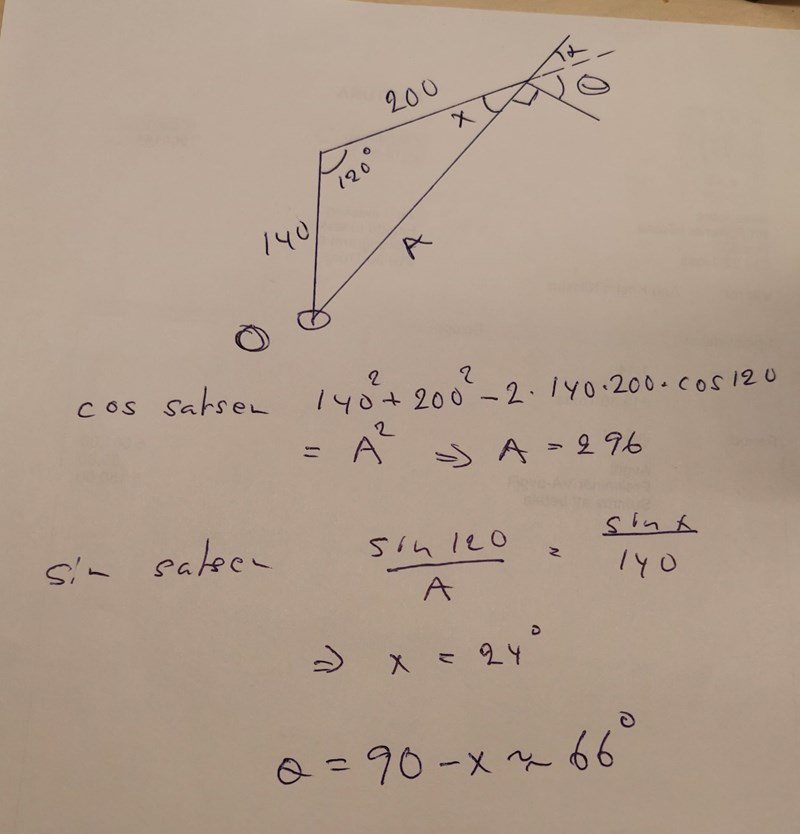 x
200
θ
x
120°
140
A
O
cos satsen 140² + 200² - 2 · 140 · 200 · cos 120
= A² ⇒ A = 296
sin satsen sin 120 / A = sin x / 140
⇒ x = 24°
θ = 90 - x ≈ 66°